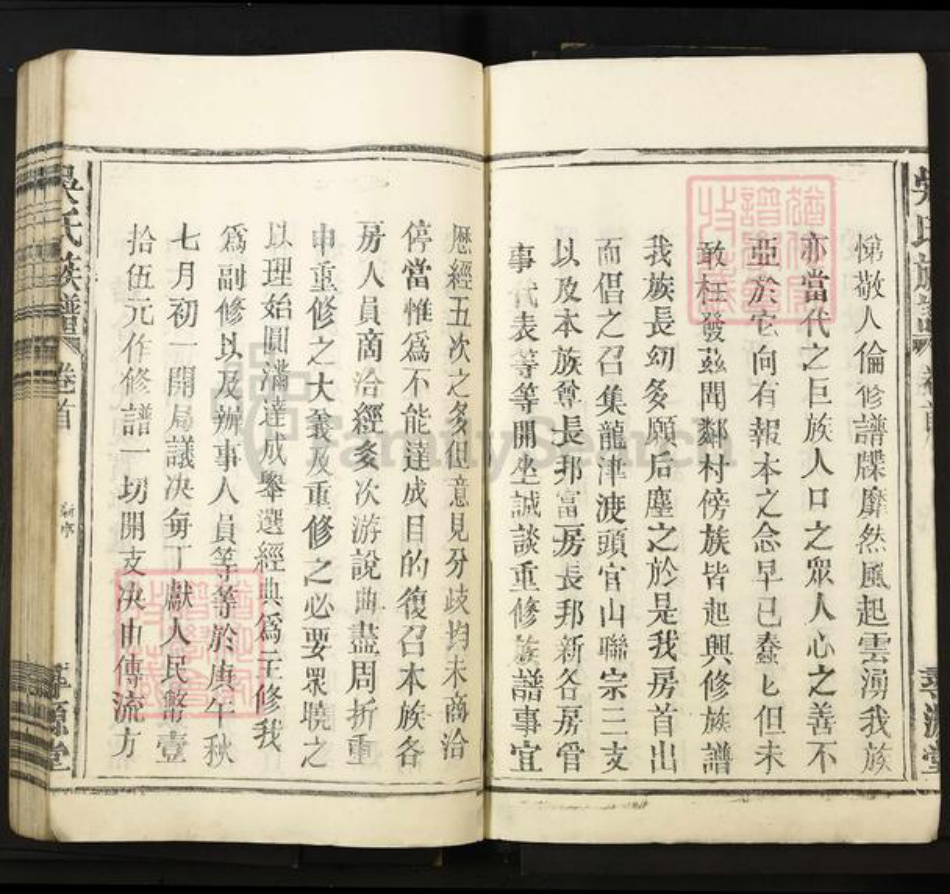 悌敬人倫修譜牒靡然風起雲湧我族
亦當代之巨族人口之眾人心之善不
亞於它向有報本之念早已蠢匕但未
敢枉發茲聞鄰村傍族皆起興修族譜
我族長幼多願后塵之於是我房首出
而倡之召集龍津渡頭官山聯宗三支
以及本族尊長邦富房長邦新各房管
事代表等等開坐誠談重修族譜事宜
歷經五次之多但意見分歧均未商洽
停當惟爲不能達成目的復召本族各
房人員商洽經多次游說典盡周折重
申重修之大義及重修之必要眾曉之
以理始圓滿達成舉選經典爲主修我
爲副修以及辦事人員等等於庚午秋
七月初一開局議决每丁獻人民幣壹
拾伍元作修譜一切開支决由傳流方
吳氏族譜
卷首
FamilySearch